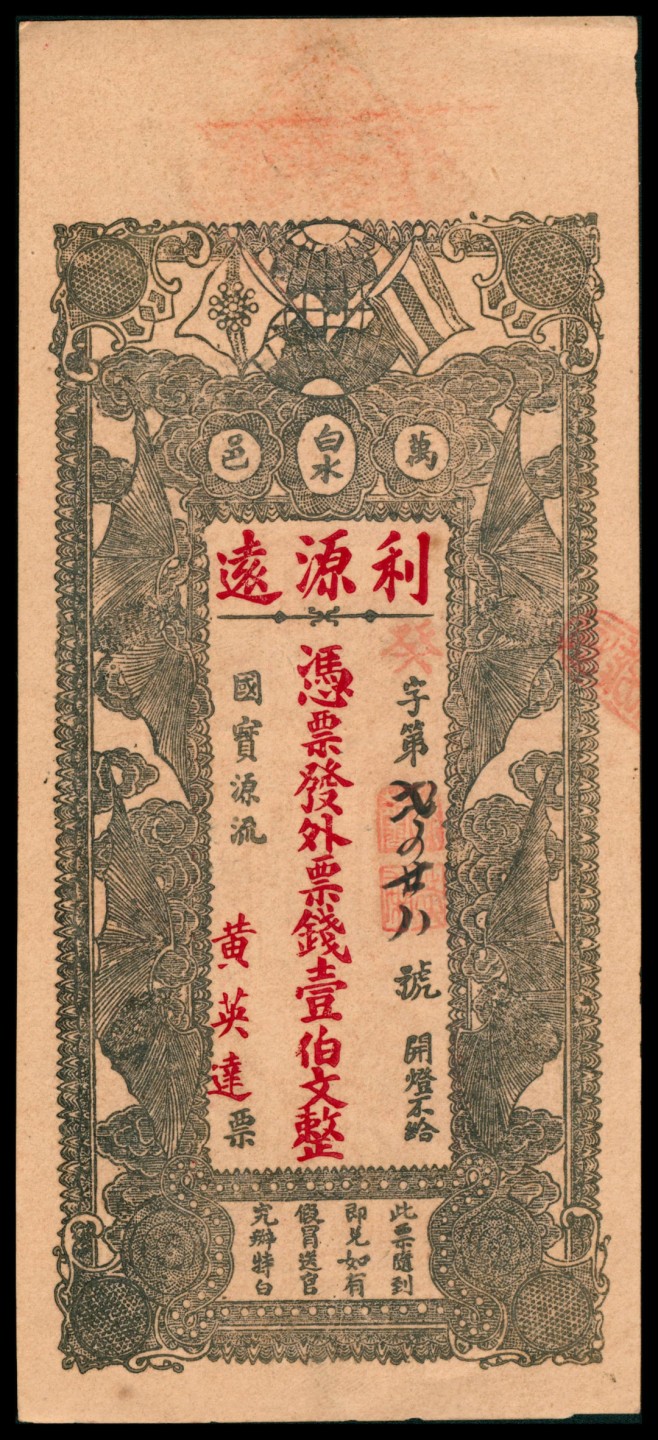 萬白水邑
利源遠
癸字第貳百廿八號 開燈不給
憑票發外票錢壹伯文整
國寶源流 黃英達票
此票隨到
即兌如有
假冒送官
究辦特白